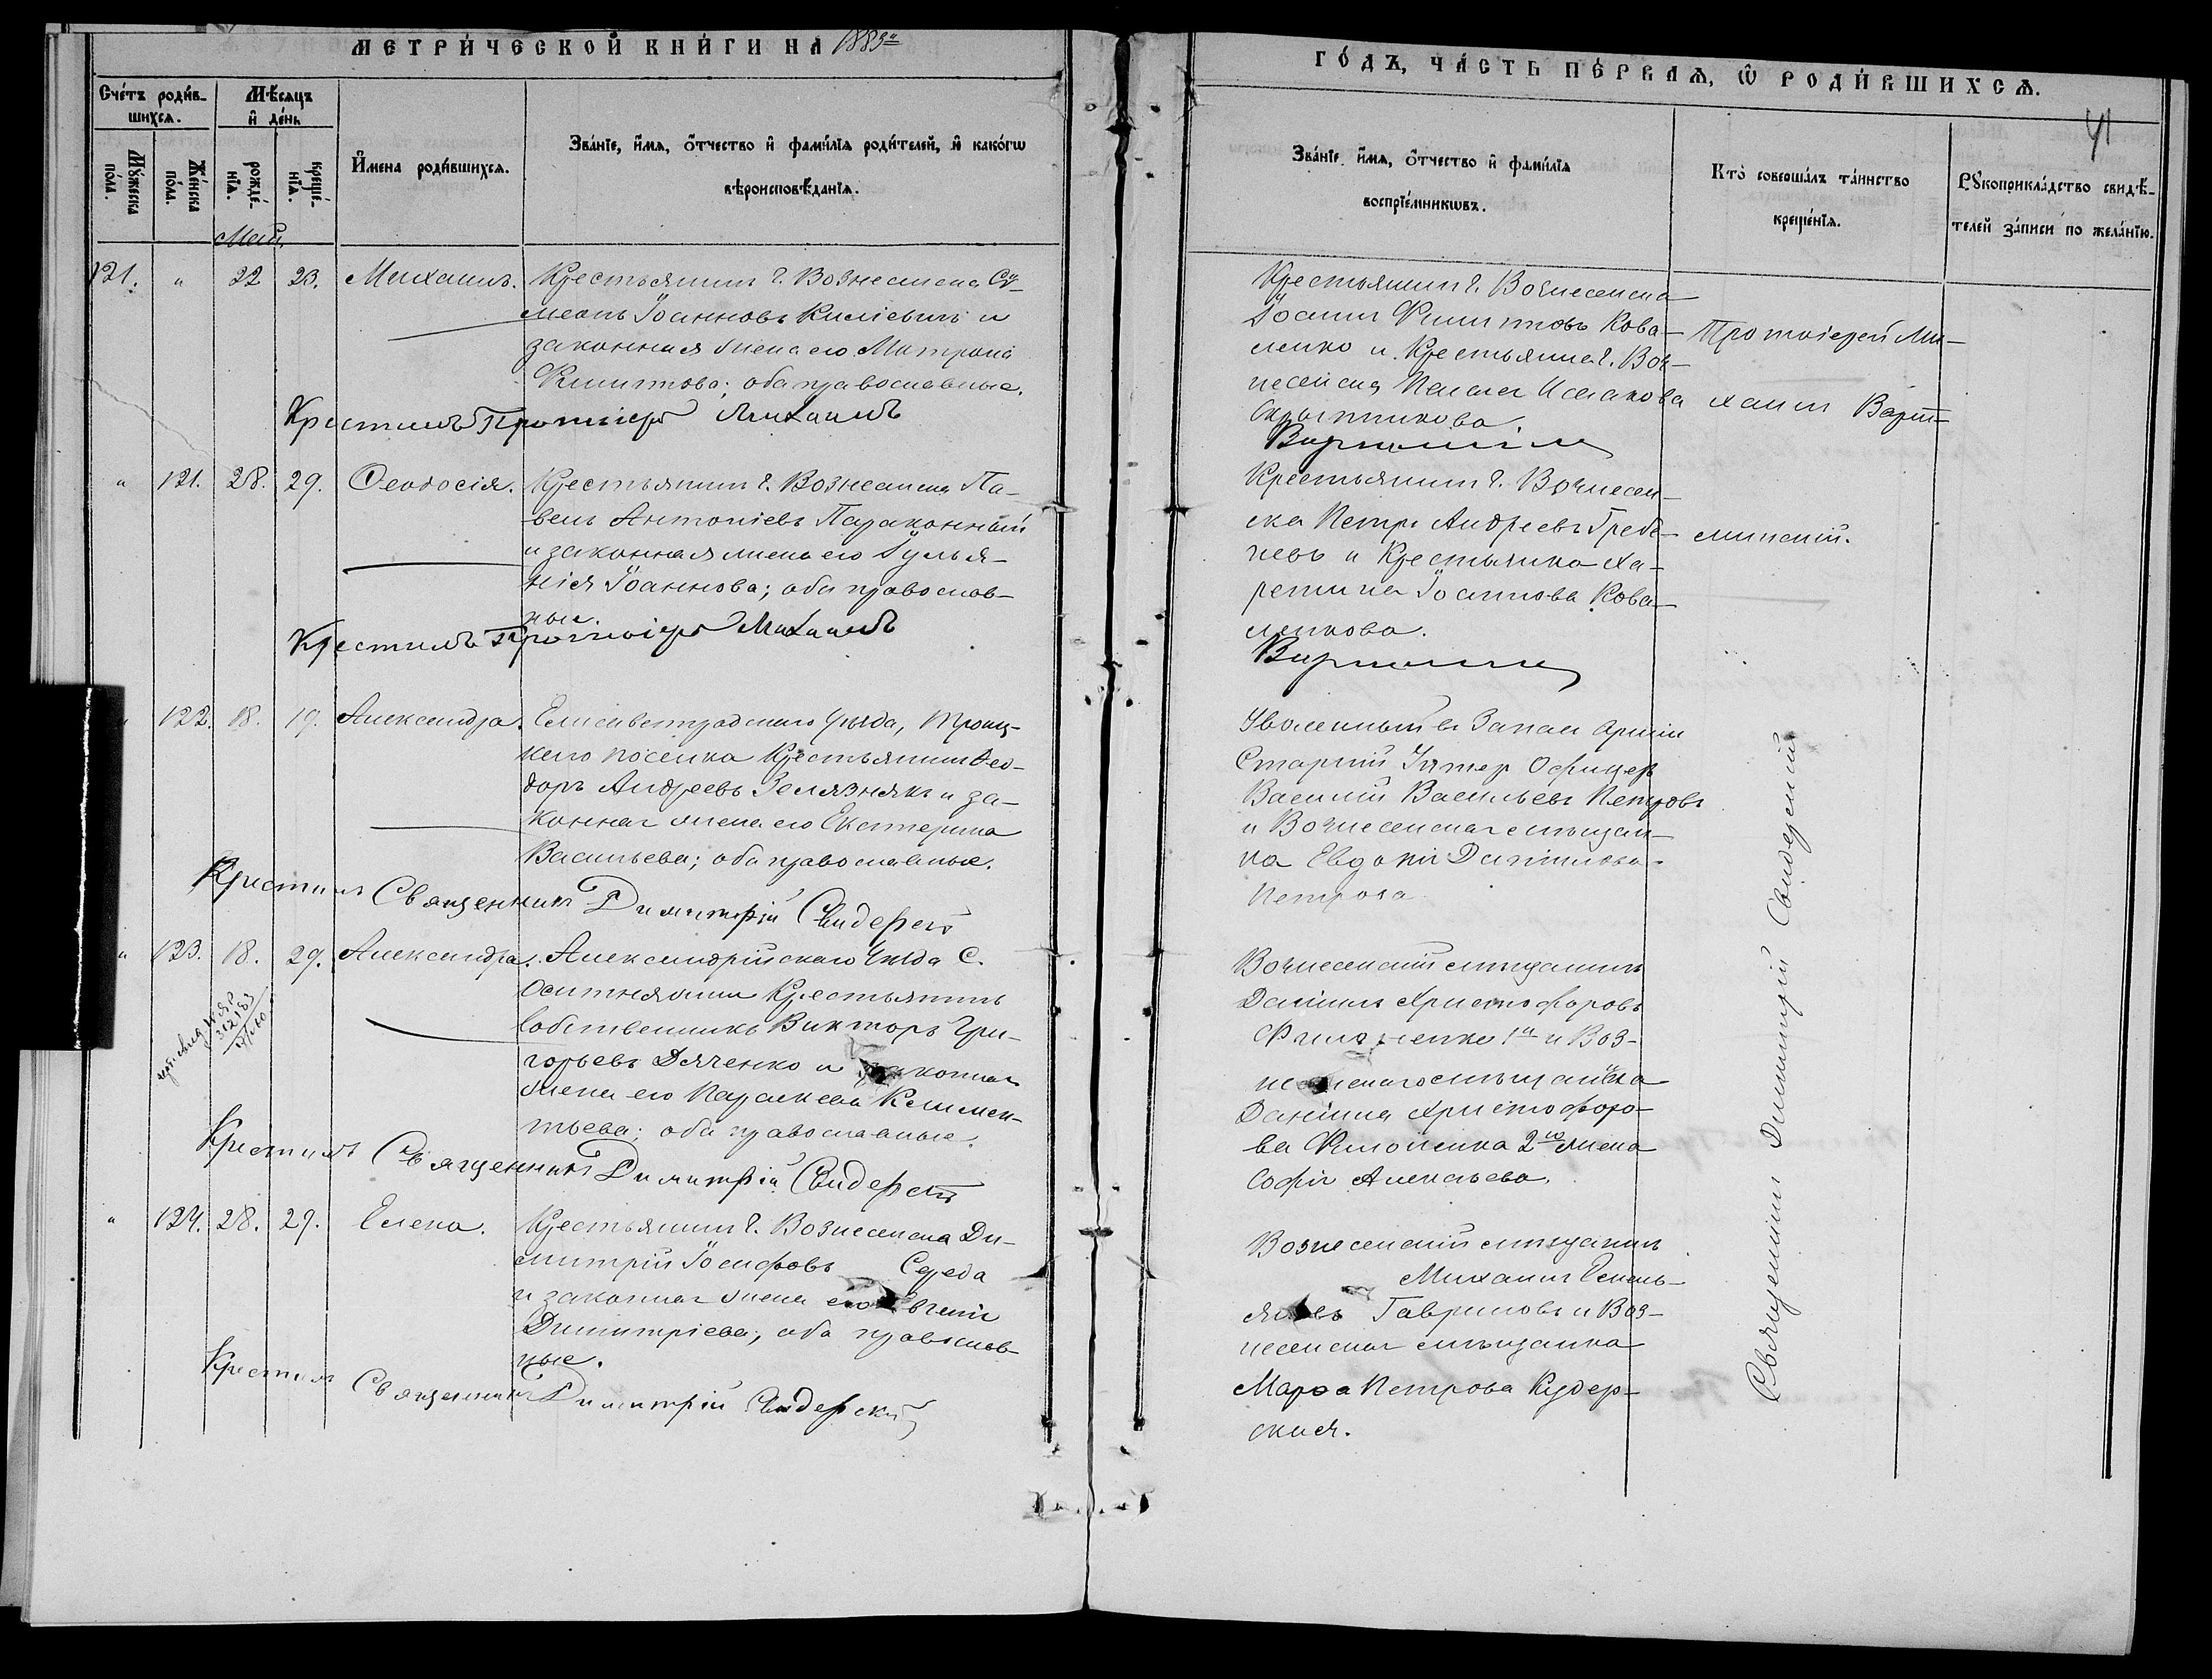 МЕТРИ́ЧЕСКОЙ КНИ́ГИ НА 1883й
ГО́ДЪ, ЧА́СТЬ ПЕ́РВАѦ, Ѽ РОДИ́ВШИХСѦ.
41
Сче́тъ роди́в-
шихсѧ.
Мѣ́сѧцъ
и҆ де́нь
И҆мена роди́вшихсѧ.
Зва́нїе, и҆́мѧ, ѻ҆́тчество и҆ фами́лїѧ роди́телей, и҆ како́гѡ
вѣроисповѣ́данїѧ.
Мꙋ́жеска
по́ла.
Же́нска
по́ла.
рожде́-
нїѧ.
креще́-
нїѧ.
Зва́нїе, и҆́мѧ, ѻ҆́тчество и҆ фами́лїѧ
воспрїе́мникѡвъ.
Кто̀ соверша́лъ та́инство
креще́нїѧ.
Рꙋкоприкла́дство свидѣ́-
телей за́писи по жела́нїю.
Май
121. " 22 23. Михаилъ. Крестьянинъ г. Вознесенска Си-
меонъ Іоанновъ и
законная жена его Матрона
Филиппова; оба православные.
Крестилъ Протоіерей Михаилъ
Крестьянинъ г. Вознесенска
Іоаннъ Филипповъ Кова-
ленко и Крестьянка г. Воз-
несенска Исаакова
Скрыпникова.
Протоіерей Ми-
хаилъ Варши-
" 121. 28. 29. Ѳеодосія. Крестьянинъ г. Вознесенска Па-
велъ Антоніевъ Параконный
и законная жена его Іулья-
нія Іоаннова; оба православ-
ные.
Крестилъ Протоіерей Михаилъ
Крестьянинъ г. Вознесен-
ска Петръ Андреевъ Гребе-
невъ и Крестьянка Ха-
ретина Іоаннова Кова-
ленкова.
" 122. 18. 19. Александра. Елисаветградскаго уѣзда, Троиц-
каго поселка Крестьянинъ Ѳео-
доръ Андреевъ Зелязнякъ и за-
конная жена его Екатерина
Васильева; оба православные.
Крестилъ Священникъ Димитрій Свидерскій
Уволенный въ Запасъ арміи
Старшій Унтер Офицеръ
Василій Васильевъ Петровъ
и Вознесенская мѣщан-
ка Евдокія Даниилова
Петрова
" 123. 18. 29. Александра. Александрійскаго уѣзда С.
Оситняжки Крестьянинъ
собственникъ Викторъ Гри-
горьевъ Дяченко и законная
жена его Параскева Климен-
тьева; оба православные.
Крестилъ Священникъ Димитрій Свидерскій
Вознесенскій мѣщанинъ
Даніилъ Христофоровъ
Филоненко 1й и Воз-
несенскаго мѣщанина
Даніила Христофоро-
ва Филоненка 2го жена
Софія Алексѣева.
" 124. 28. 29. Елена. Крестьянинъ г. Вознесенска Ди-
митрій Іосифовъ Середа
и законная жена его Евгенія
Димитріева; оба православ-
ные.
Крестилъ Священникъ Димитрій Свидерскій
Вознесенскій мѣщанинъ
Михаилъ Емель-
яновъ Гавриловъ и Воз-
несенская мѣщанка
Марѳа Петрова Кудер-
ская.
Священникъ Димитрій Свидерскій